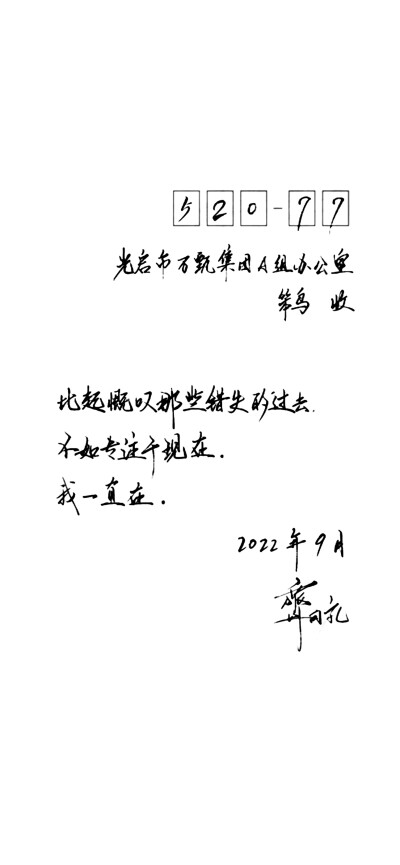 520-77
光启市万甄集团A组办公室
笨鸟 收
比起慨叹那些错失的过去.
不如专注于现在.
我一直在.
2022年9月
齐司礼